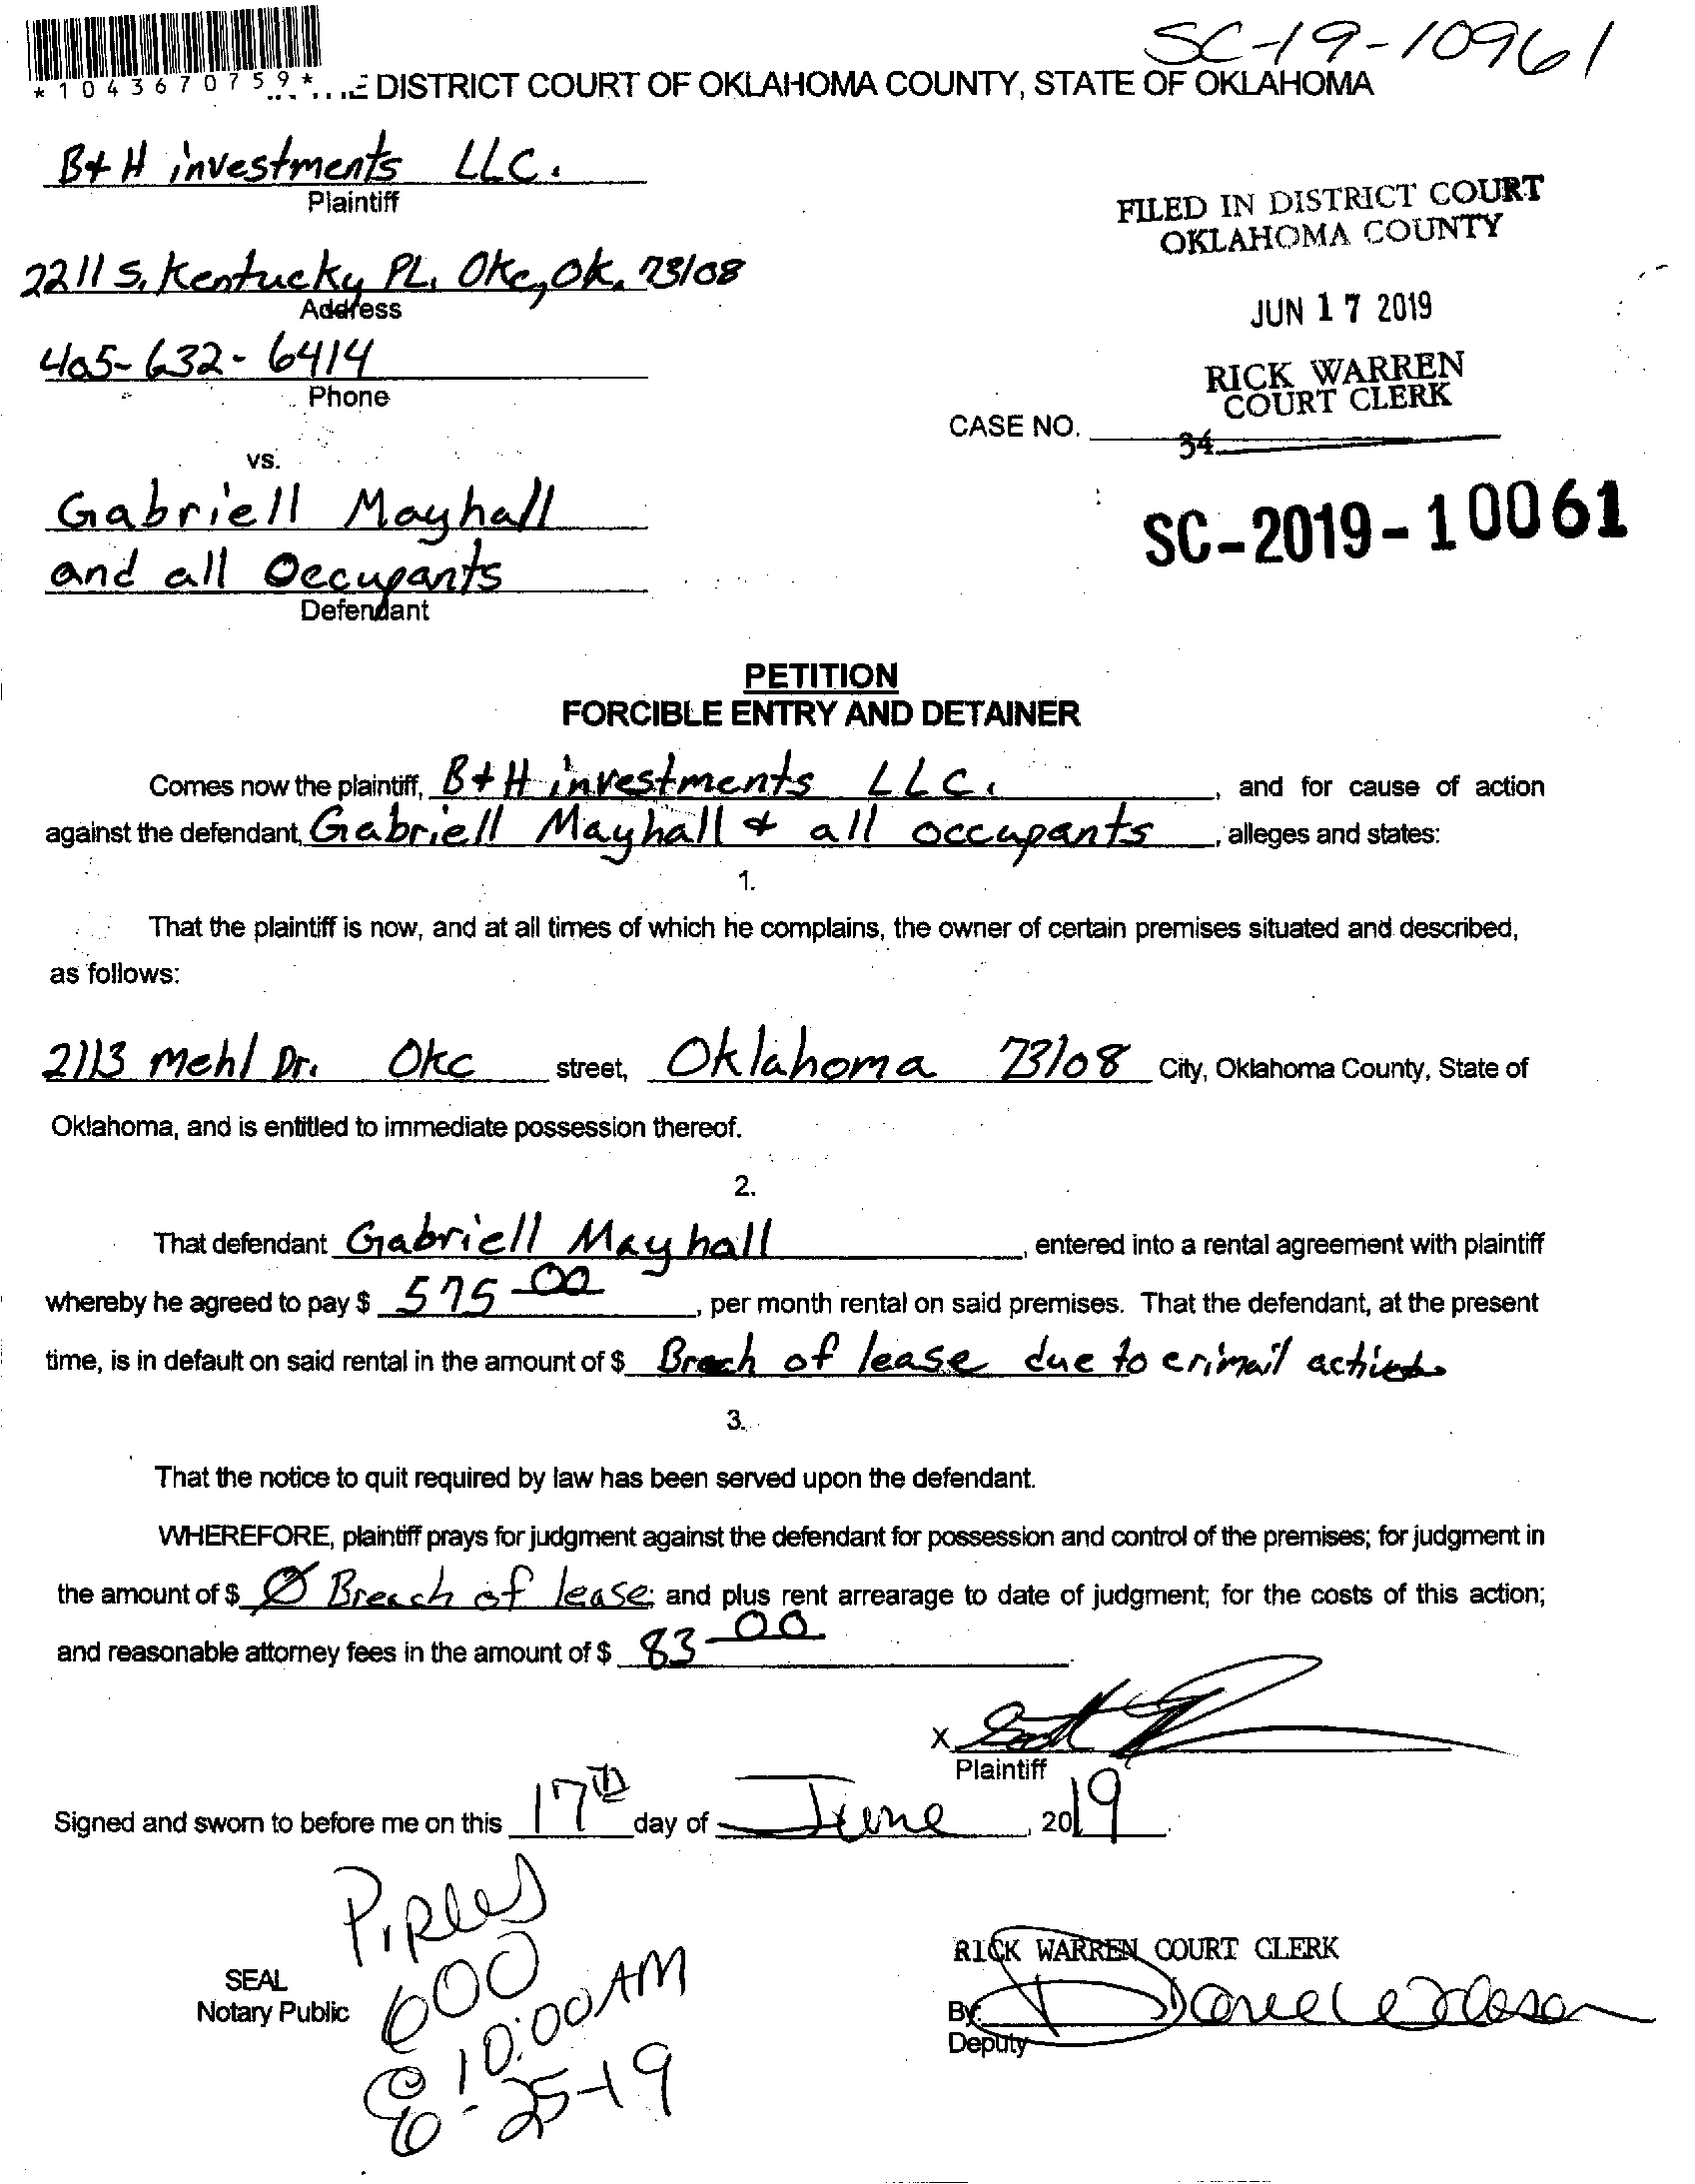 SC-19-10961
*1043670759*
DISTRICT COURT OF OKLAHOMA COUNTY, STATE OF OKLAHOMA
B+H investments LLC.
Plaintiff
FILED IN DISTRICT COURT
OKLAHOMA COUNTY
2211 S. Kentucky PL. Okc, Ok. 73108
Address
JUN 17 2019
405-632-6414
Phone
RICK WARREN
COURT CLERK
CASE NO.
34
vs.
SC-2019-10061
Gabriell Mayhall
and all Occupants
Defendant
PETITION
FORCIBLE ENTRY AND DETAINER
Comes now the plaintiff, B+H investments LLC. , and for cause of action
against the defendant, Gabriell Mayhall + all occupants , alleges and states:
1.
That the plaintiff is now, and at all times of which he complains, the owner of certain premises situated and described,
as follows:
2113 Mehl Dr. Okc street, Oklahoma 73108 City, Oklahoma County, State of
Oklahoma, and is entitled to immediate possession thereof.
2.
That defendant Gabriell Mayhall , entered into a rental agreement with plaintiff
whereby he agreed to pay $ 575 00 , per month rental on said premises. That the defendant, at the present
time, is in default on said rental in the amount of $ Brech of lease due to crimail
3.
That the notice to quit required by law has been served upon the defendant.
WHEREFORE, plaintiff prays for judgment against the defendant for possession and control of the premises; for judgment in
the amount of $ Ø Breach of lease; and plus rent arrearage to date of judgment; for the costs of this action;
and reasonable attorney fees in the amount of $ 83-00.
X
Plaintiff
Signed and sworn to before me on this 17th day of June , 2019.
SEAL
Notary Public
600
@ 10:00 AM
6-25-19
RICK WARREN COURT CLERK
By:
Deputy